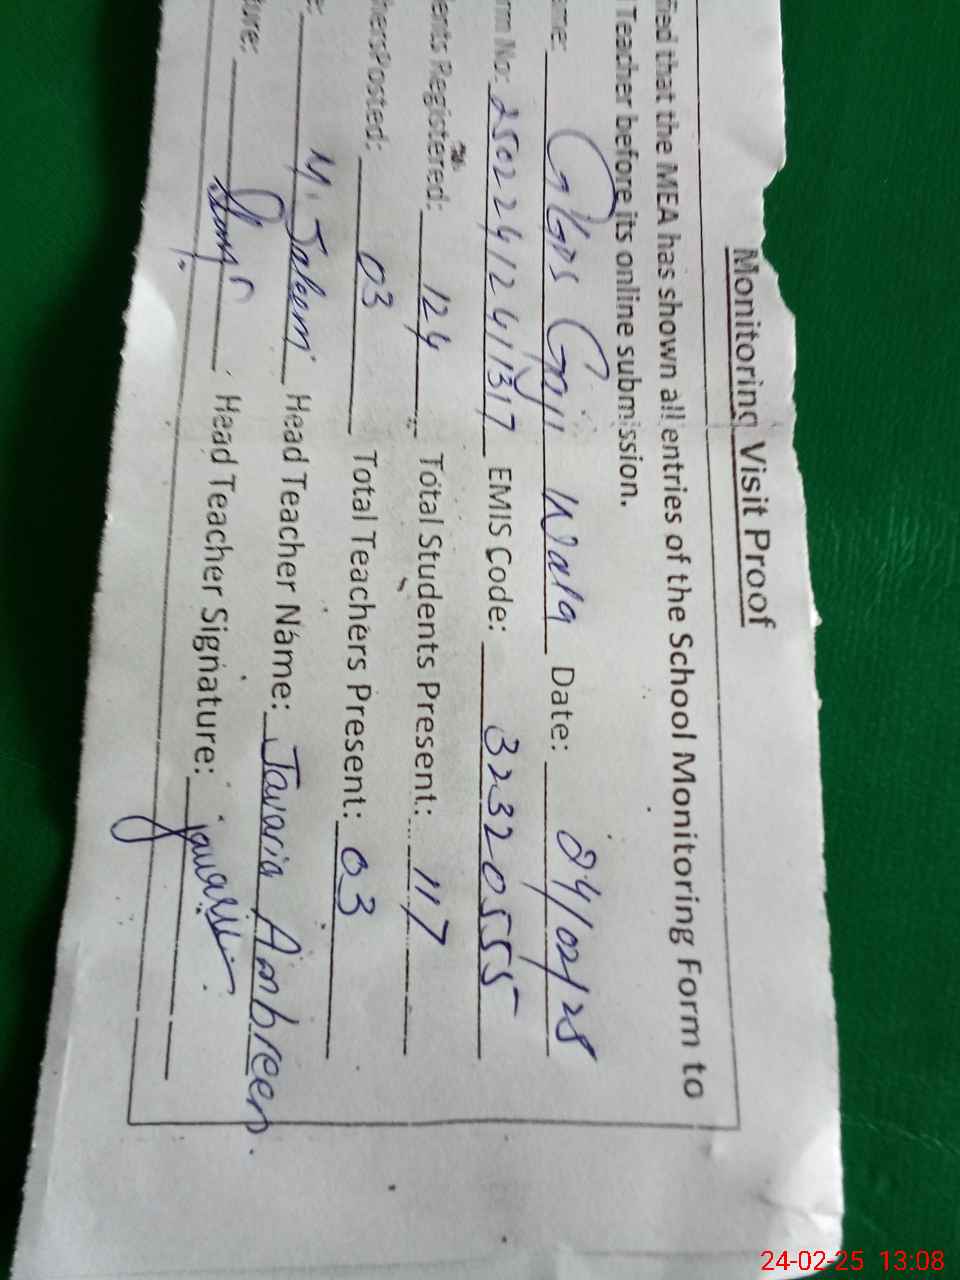 Monitoring Visit Proof
fied that the MEA has shown all entries of the School Monitoring Form to
Teacher before its online submission.
ame: GGPS Gaji Wala Date: 24/02/25
rm No: 2502241241317 EMIS Code: 32320555
ents Registered: 124 Total Students Present: 117
hersPosted: 03 Total Teachers Present: 03
e: M. Saleem Head Teacher Name: Javaria Ambreen.
ture: Head Teacher Signature: javaria
24-02-25 13:08